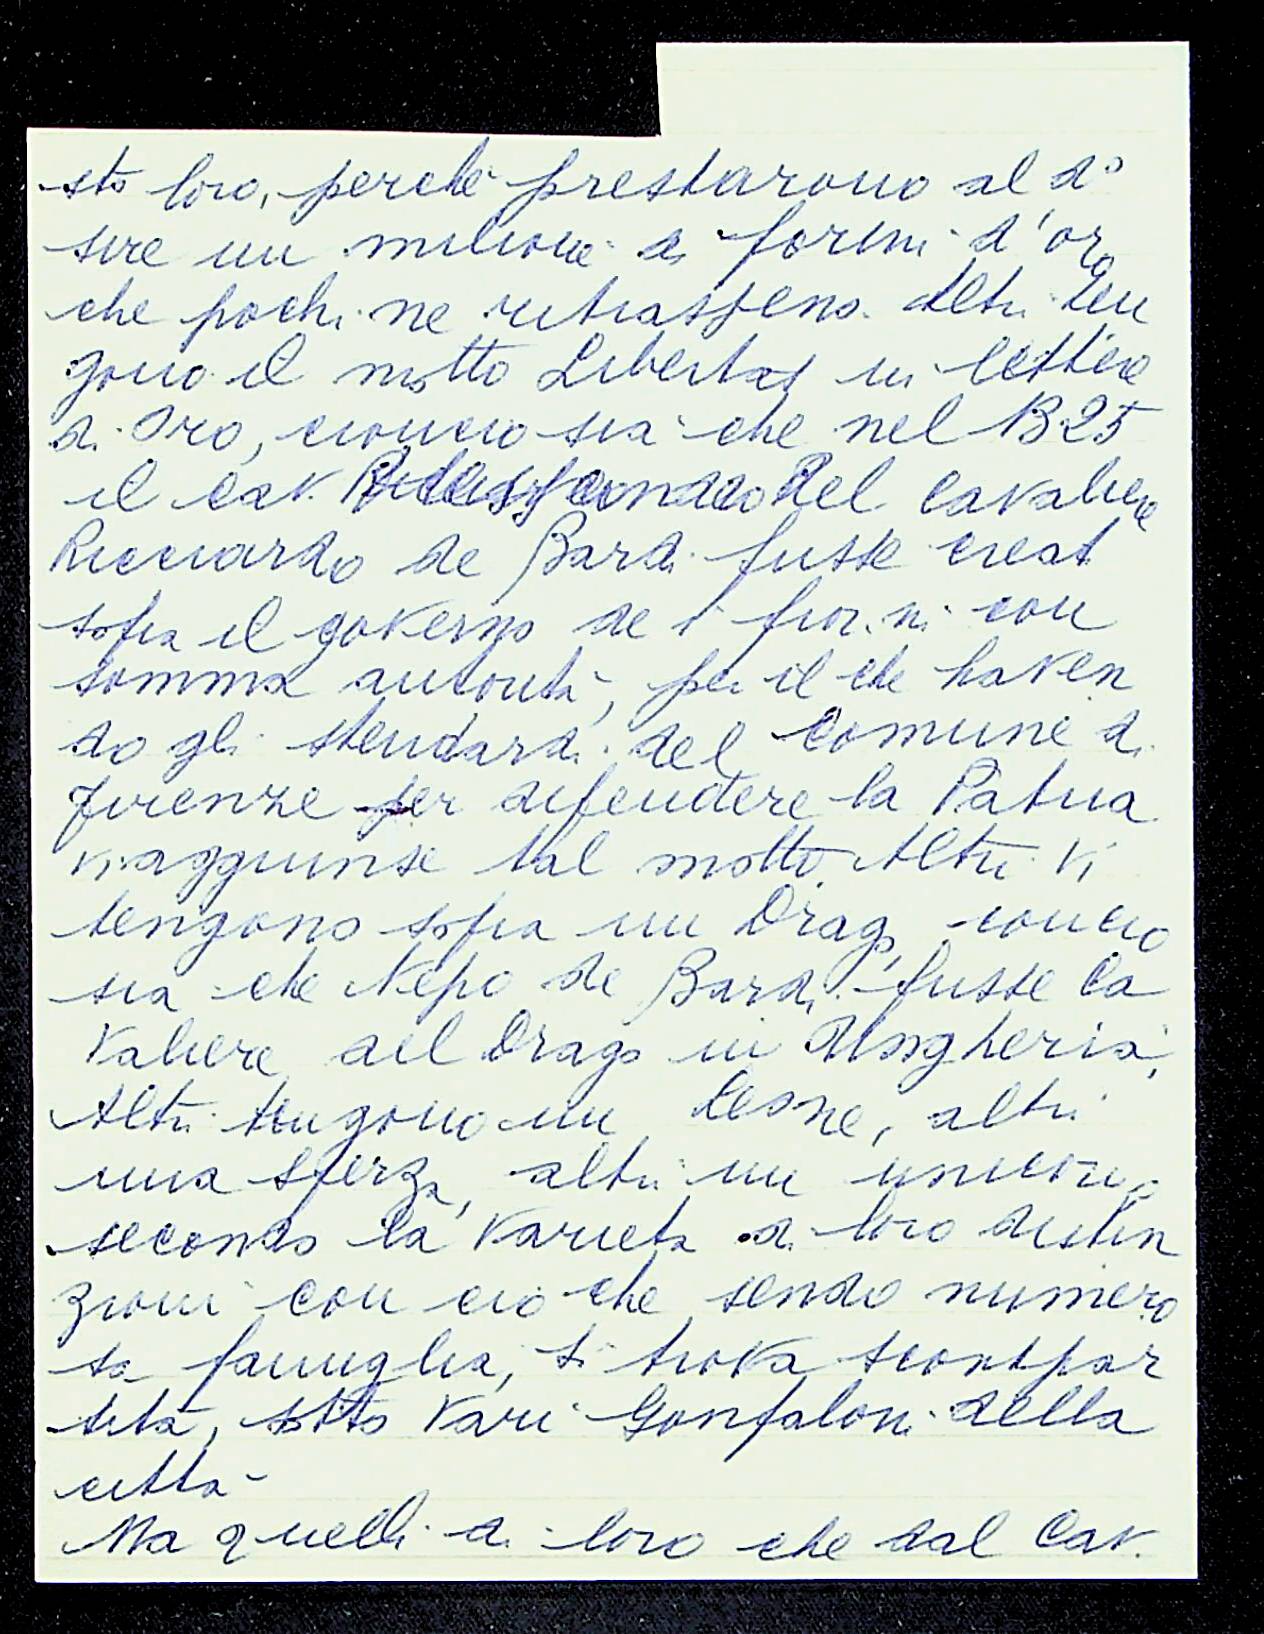 sto loro, perchè prestarono al d°
sire un milione di forini d'oro
che pochi ne ritrassero. Altri ten
gono il motto Libertas in lettere
di oro, conciosia che nel 1325
il cav. del cavaliere
Ricciardo de Bardi fusse creat
sopra il governo de i fior.ni con
somma autorità, per il che haven
do gli stendardi del Comune di
Firenze per difendere la Patria
vi aggiunse tal motto. Altri vi
tengono sopra un Drago, concio
sia che Nepo de Bardi fusse Ca
valiere del Drago in Ungheria,
Altri tengono un leone, altri
una sferza, altri un unicorno
secondo la varietà di loro distin
zioni con ciò che sendo numero
sa famiglia, si trova scompar
tita, sotto vari Gonfaloni della
città
Ma quelli di loro che dal Cav.